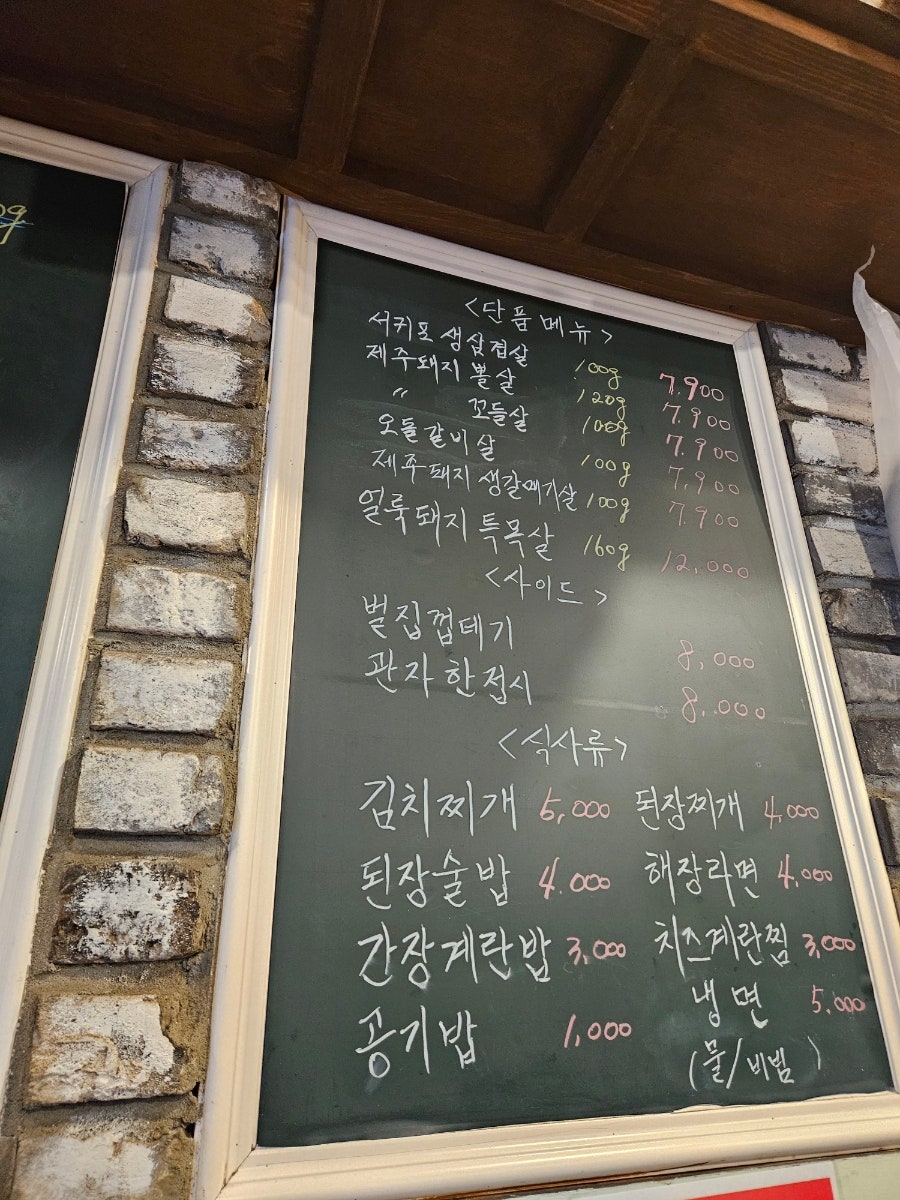 0g
<단품메뉴>
서귀포 생삼겹살 100g 7.900
제주돼지 뽈살 120g 7.900
〃 꼬들살 100g 7.900
오돌갈비살 100g 7.900
제주돼지 생갈매기살 100g 7.900
얼룩돼지 특목살 160g 12,000
<사이드>
벌집껍데기 8,000
관자 한접시 8,000
<식사류>
김치찌개 5,000 된장찌개 4,000
된장술밥 4.000 해장라면 4,000
간장계란밥 3,000 치즈계란찜 3,000
공기밥 1,000 냉면 5,000
(물/비빔)